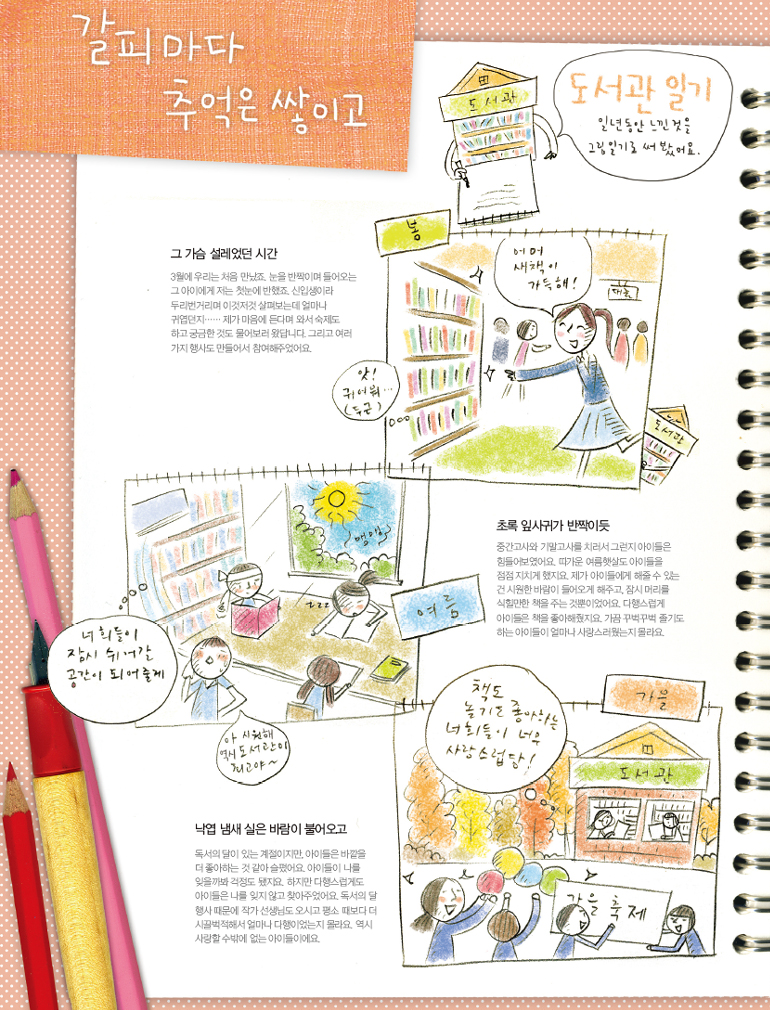 갈피마다
추억은 쌓이고
도서관
도서관 일기
일년동안 느낀 것을
그림일기로 써 봤어요.
봄
그 가슴 설레었던 시간
3월에 우리는 처음 만났죠. 눈을 반짝이며 들어오는
그 아이에게 저는 첫눈에 반했죠. 신입생이라
두리번거리며 이것저것 살펴보는데 얼마나
귀엽던지…… 제가 마음에 든다며 와서 숙제도
하고 궁금한 것도 물어보러 왔답니다. 그리고 여러
가지 행사도 만들어서 참여해주었어요.
어머
새책이
가득해!
대출
앗!
귀여워…
(두근)
도서관
초록 잎사귀가 반짝이듯
중간고사와 기말고사를 치러서 그런지 아이들은
힘들어보였어요. 따가운 여름햇살도 아이들을
점점 지치게 했지요. 제가 아이들에게 해줄 수 있는
건 시원한 바람이 들어오게 해주고, 잠시 머리를
식힐만한 책을 주는 것뿐이었어요. 다행스럽게
아이들은 책을 좋아해줬지요. 가끔 꾸벅꾸벅 졸기도
하는 아이들이 얼마나 사랑스러웠는지 몰라요.
맴맴
zzz
여름
너희들이
잠시 쉬어갈
공간이 되어줄게
아 시원해
역시 도서관이
최고야~
가을
책도
놀기도 좋아하는
너희들이 너무
사랑스럽당!
도서관
낙엽 냄새 실은 바람이 불어오고
독서의 달이 있는 계절이지만, 아이들은 바깥을
더 좋아하는 것 같아 슬펐어요. 아이들이 나를
잊을까봐 걱정도 됐지요. 하지만 다행스럽게도
아이들은 나를 잊지 않고 찾아주었어요. 독서의 달
행사 때문에 작가 선생님도 오시고 평소 때보다 더
시끌벅적해서 얼마나 다행이었는지 몰라요. 역시
사랑할 수밖에 없는 아이들이에요.
가을 축제